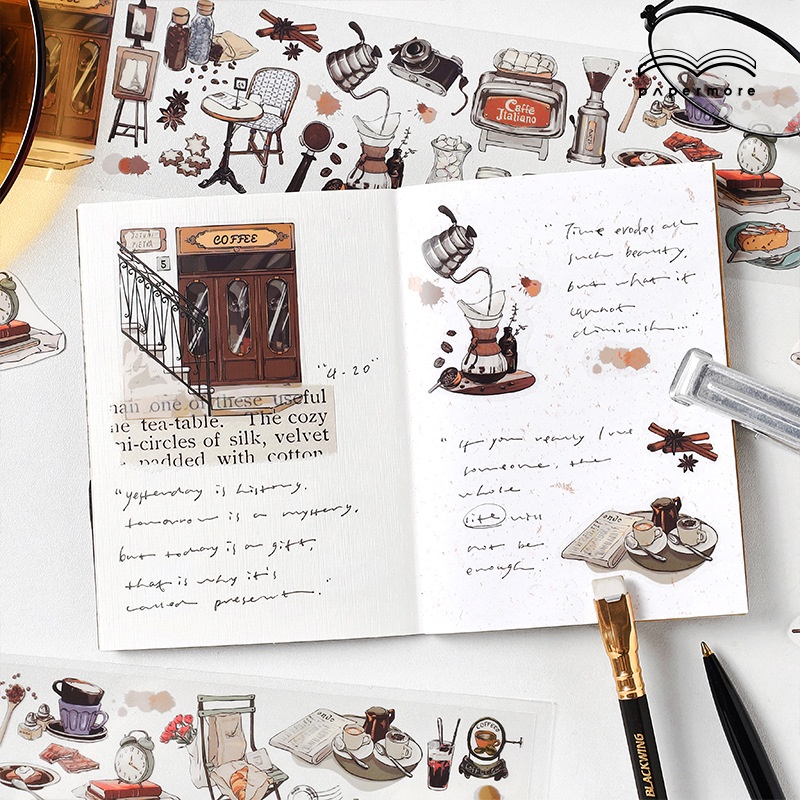 papermore
Caffè
Italiano
COFFEE
5
"4-20"
man one of these useful
he tea-table. The cozy
mi-circles of silk, velvet
padded with cotton
"yesterday is history,
tomorrow is a mystery,
but today is a gift,
that is why it's
called present."
"Time erodes all
such beauty,
but what it
cannot
diminish..."
"if you really love
someone, the
whole
life will
not be
enough
BLACKWING
COFFEE